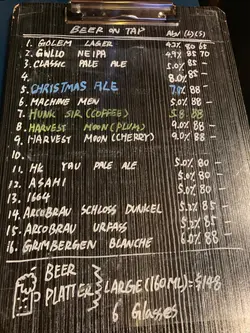 BEER ON TAP ABV (L) (S)
1. GOLEM LAGER 4.2% 80 65
2. GWILO NEIPA 4.9% 85 70
3. CLASSIC PALE ALE 5.0% 85 –
4. 8.0% 85 –
5. CHRISTMAS ALE 7.8% 88 –
6. MACHINE MEN 5.0% 88 –
7. HUNK SIR (COFFEE) 5.8 88 –
8. HARVEST MOON (PLUM) 9.0% 88 –
9. HARVEST MOON (CHERRY) 9.0% 88 –
10. –
11. HK YAU PALE ALE 5.0% 80 –
12. ASAHI 5.0% 80 –
13. 1664 5.0% 85 –
14. ARCOBRAU SCHLOSS DUNKEL 5.2% 85 –
15. ARCOBRAU URFASS 5.2% 88 –
16. GRIMBERGEN BLANCHE 6.0% 88 –
BEER
PLATTER LARGE (160ML) = $148
6 Glasses